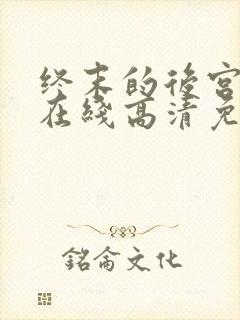 终末的後宫
在綫高清免
銘侖文化